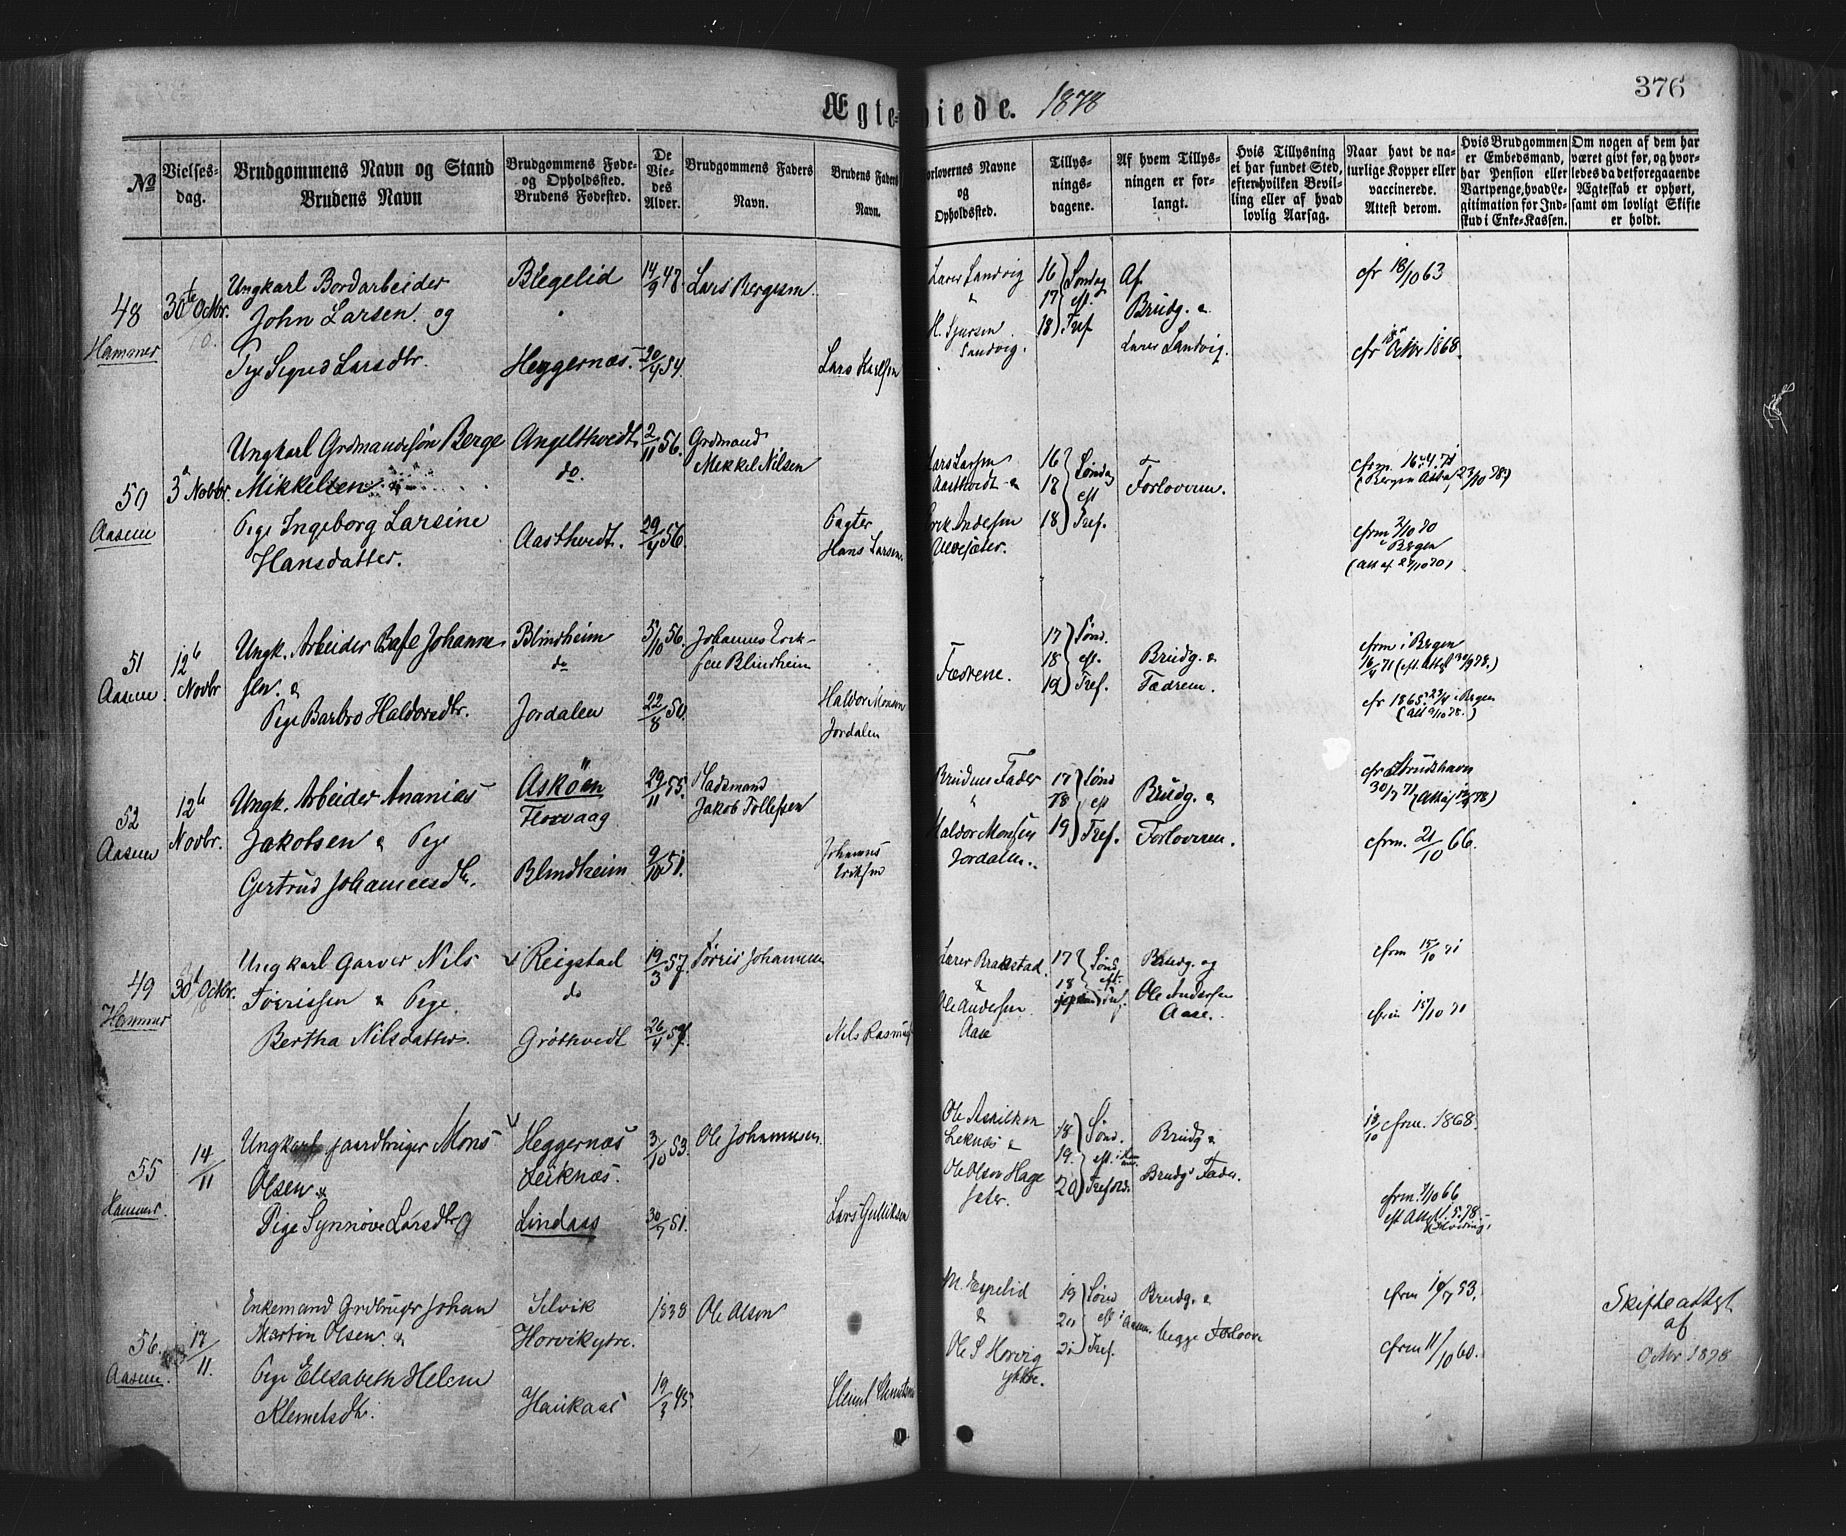 376
Ægteviede. 1878
No
Vielses-
dag.
Brudgommens Navn og Stand
Brudens Navn
Brudgommens Føde-
og Opholdssted.
Brudens Fødested.
De
Vie-
des
Alder.
Brudgommens Faders
Navn.
Brudens Faders
Navn.
Forlovernes Navne
og
Opholdssted.
Tillys-
nings-
dagene.
Af hvem Tillys-
ningen er for-
langt.
Hvis Tillysning
ei har fundet Sted,
efter hvilken Bevil-
ling eller af hvad
lovlig Aarsag.
Naar havt de na-
turlige Kopper eller
vaccinerede.
Attest derom.
Hvis Brudgommen
er Embedsmand,
har Pension eller
Vartpenge, hvad Le-
gitimation for Ind-
skud i Enke-Kassen.
Om nogen af dem har
været givt før, og hvor-
ledes da det foregaaende
Ægteskab er ophørt,
samt om lovligt Skifte
er holdt.
48
Hammer
30te Octbr.
Ungkarl Bordarbeider
John Larsen og
Pige Sigrid Larsdtr.
Blegelid
Heggernæs
14/9 48
20/4 54.
Lars Bergesen
Lars Karlsen
Lærer Sandvig
Sandvig.
16
17
18
Søndag
eft.
Tref
Af
Brudg. &
Lærer Sandvig.
cfr 18/10 63
cfr Octbr 1868.
50
Aasene
3 Novbr.
Ungkarl Grdmandssøn Berge
Mikkelsen &
Pige Ingeborg Larsine
Hansdatter.
Angelthvedt
do.
Aasthvedt.
2/11 56.
29/4 56.
Grdmand
Mikkel Nilsen
Pagter
Hans Larsen.
Lars Larsen
Aasthvedt &
Andersen
Ulvesæter.
16
18
18
Søndag
eft
Tref.
Forloverne.
cfrm. 16.4.71
(Bergen Att. 23/10 78)
cfrm 2/10 70
i Bergen
51
Aasene
12te
Novbr
Ungk. Arbeider Johanne-
sen. &
Pige Barbro Haldorsdtr.
Blindheim
do
Jordalen
5/10 56.
22/8 50.
Johannes Erik-
sen Blindheim
Haldor Monsen
Jordalen
Fædrene.
17
18
19
Sønd.
eft.
Tref.
Brudg. &
Fædrene.
cfrm i Bergen
cfr 1865 23/4 i Bergen
52
Aasene
12te
Novbr.
Ungk. Arbeider Ananias
Jakobsen & Pige
Gertrud Johannesdtr.
Askøen
Florvaag
Blindheim
29/11 55.
9/10 51.
Pladsmand
Jakob Tollefsen
Johannes
Eriksen
Brudens Fader
&
Haldor Monsen
Jordalen.
17
18
19
Sønd
eft
Tref.
Brudg. &
Forloveren.
cfr Strudshavn
cfrm. 21/10 66.
49
Hammer
30te Octbr.
Ungkarl Garver Nils
Tørrissen & Pige
Bertha Nilsdatter.
Reigstad
do
Grøthvedt
19/3 57.
26/4 57.
Tørris Johannesen
Nils Rasmus
Lærer Brakstad
&
Ole Andersen
Aase
17
18
Sønd
eft
Brudg. og
Ole Andersen
Aase.
cfrm 15/10 71
cfrm 15/10 71
55
Hammer.
14/11
Ungkarl Gaardbruger Mons
Olsen &
Pige Synnøve Larsdtr
Heggernæs
Leiknæs.
Lindaas
3/10 53.
30/7 51.
Ole Johannesen
Lars Gulliksen
Ole Askilksen
Leknæs &
Ole Olsen Hage
sæter.
18
19.
20
Sønd.
eft.
Brudg &
Brudgs Fader.
13/10 cfrm. 1868.
cfrm. 7/10 66
56.
Aasene.
17/11
Enkemand Grdbruger Johan
Martin Olsen &
Pige Elisabeth Helene
Klemetsdtr.
Selvik
Horvikytre.
Haukaas
1838
19/3 45.
Ole Olson
M. Eyvelid
&
Ole S Horvig
ytre.
19
20
21
Sønd
eft i
Aasene
Tref.
Brudg. &
begge Forlovere
cfrm 10/7 53.
cfrm 11/10 60.
Skifteattest
af
Octbr 1878